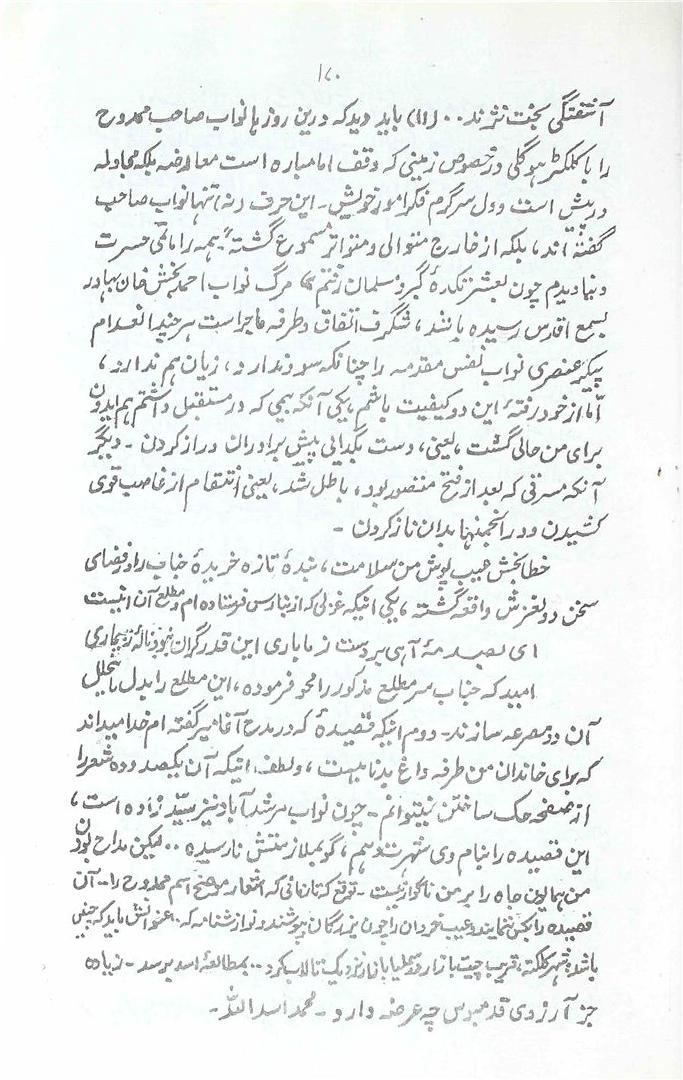 ۱۷۰
آشفتگی بخت نثرند .. (۱۱) باید دید که درین روزها نواب صاحب ممدوح
را با کلکٹر ہوگلی در خصوص زمینی که وقف امامباره است معارضه بلکه مجادله
در پیش است و دل سرگرم فکر امور خویش - این حرف رنه تنها نواب صاحب
گفته اند، بلکه از خارج متوالی و متواتر مسموع گشته "همه را ماتمی حسرت
دنیا دیدم چون بعشرتکدهٔ گبر و مسلمان رفتم" مرگ نواب احمد بخش خان بهادر
بسمع اقدس رسیده باشد، شگرف اتفاق و طرفه ماجراست هر چند انعدام
پیکر عنصری نواب نفس مقدمه را چنانکه سود ندارد، زیان هم ندارد،
امّا از خود رفتهٔ این دو کیفیت باشم، یکی آنکه بیمی که در مستقبل داشتم هم ایدون
برای من حالی گشت، یعنی، دست بگدایی پیش برادران دراز کردن - دیگر
آنکه مسرتی که بعد از فتح متصور بود، باطل شد، یعنی انتقام از غاصب قوی
کشیدن و در انجمنها بدان ناز کردن -
خطا بخش عیب پوش من سلامت، بندهٔ تازه خریدهٔ جناب را در فضای
سخن دو لغزش واقعه گشته، یکی اینکه غزلی که از بنارس فرستاده ام و مطلع آن اینست
ای بصدمهٔ آهی بر دلت ز ما باری این قدر گران نبود نالهٔ ز بیماری
امید که جناب سر مطلع مذکور را محو فرموده، این مطلع را بدل ما یتحلل
آن دو مصرعه سازند - دوم اینکه قصیدهٔ که در مدح آغا میر گفته ام خدا میداند
که برای خاندان من طرفه داغ بدنامیست، و لطف اینکه آن یکصد و ده شعر را
از صفحه حک ساختن نیتوانم - چون نواب مرشد آباد نیز سیّد زاده است،
این قصیده را بنام وی شهرت دهم، گو بملازمتش نارسیده .. لیکن مداح بودن
من همایون جاه را بر من ناگوار نیست - توقع که تا زمانی که اشعار موضح اسم ممدوح را .. آن
قصیده را بکس ننمایند و عیب خردان را چون بزرگان بپوشند و نوازشنامه که .. عنوانش باید که چنین
باشد: بشهر کلکته، قریب چیت بازار در شملیا بازار نزدیک تالاب کرد .. بمطالعهٔ اسد برسد - زیاده
جز آرزوی قدمبوس چه عرضه دارد - محمد اسد الله -